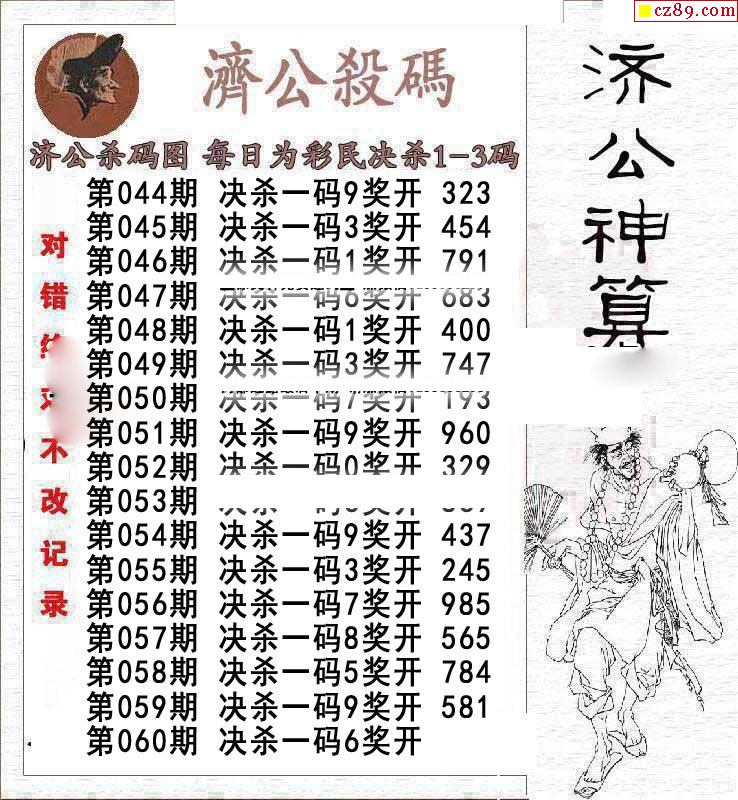 cz89.com
濟公殺碼
济公杀码图 每日为彩民决杀1-3码
第044期 决杀一码9奖开 323
第045期 决杀一码3奖开 454
第046期 决杀一码1奖开 791
第047期 决杀一码6奖开 683
第048期 决杀一码1奖开 400
第049期 决杀一码3奖开 747
第050期 决杀一码7奖开 193
第051期 决杀一码9奖开 960
第052期 决杀一码0奖开 329
第053期
第054期 决杀一码9奖开 437
第055期 决杀一码3奖开 245
第056期 决杀一码7奖开 985
第057期 决杀一码8奖开 565
第058期 决杀一码5奖开 784
第059期 决杀一码9奖开 581
第060期 决杀一码6奖开
对错绝对不改记录
济公神算